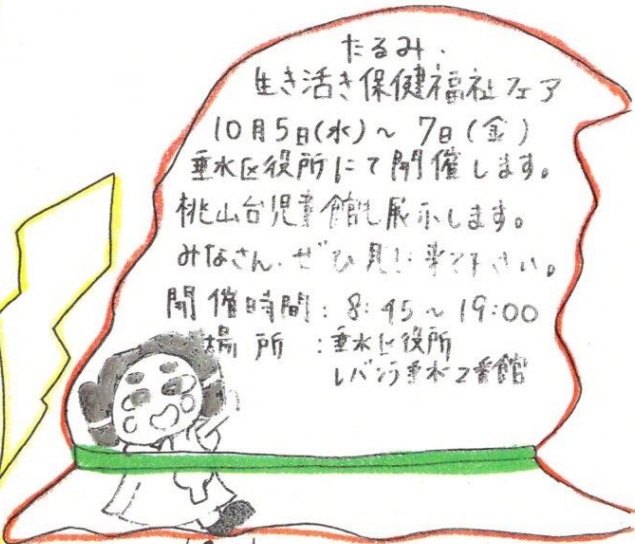 たるみ・
生き活き保健福祉フェア
10月5日(水)～7日(金)
垂水区役所にて開催します。
桃山台児童館も展示します。
みなさん、ぜひ見に来て下さい。
開催時間:8:45～19:00
場所:垂水区役所
レバンテ垂水2番館